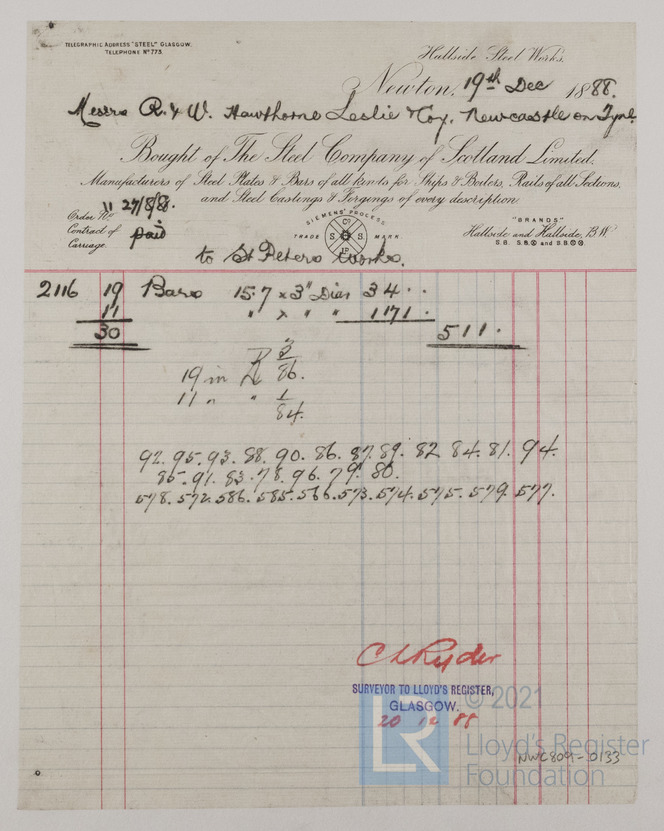 TELEGRAPHIC ADDRESS "STEEL" GLASGOW.
TELEPHONE Nº 773.
Hallside Steel Works.
Newton, 19th Dec 1888.
Messrs R. & W. Hawthorne Leslie & Coy, Newcastle on Tyne
Bought of The Steel Company of Scotland Limited.
Manufacturers of Steel Plates & Bars of all kinds for Ships & Boilers, Rails of all Sections,
and Steel Castings & Forgings of every description
Order No. 11 27/8/88.
Contract of
Carriage. paid
SIEMENS' PROCESS
TRADE MARK
"BRANDS"
Hallside and Hallside, B.W.
to St Peters Works.
2116 19 Bars 15.7 x 3" Dia 34 . .
11 " x " " 1171 .
30 511 .
19 in
86.
11 " "
84.
92. 95. 93. 88. 90. 86. 87. 89. 82 84. 81. 94.
85. 91. 83. 78. 96. 79. 80.
578. 572. 586. 585. 566. 573. 574. 575. 579. 577.
SURVEYOR TO LLOYD'S REGISTER,
GLASGOW.
20 12 88
LR
© 2021
Lloyd's Register
Foundation
NWC809-0133